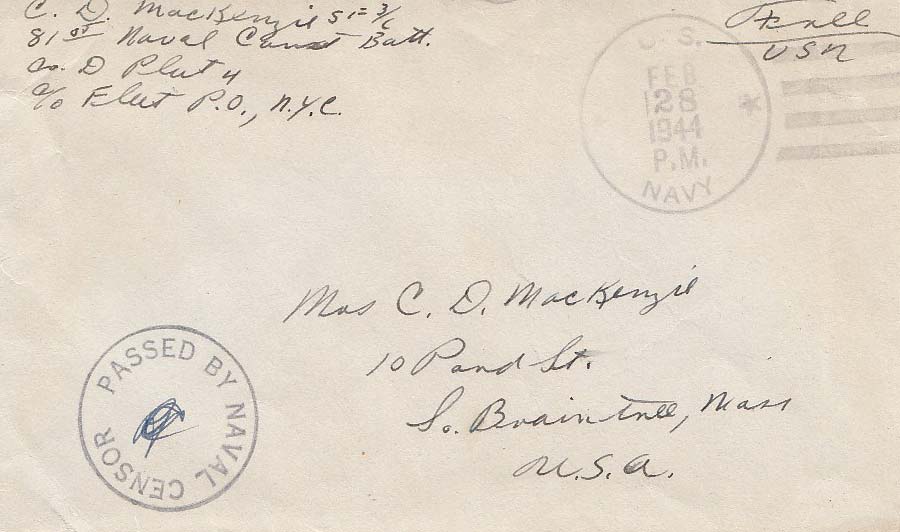 C. D. MacKenzie S 1= 3/c
81st Naval Const Batt.
Co. D Plat 4
c/o Fleet P.O., N.Y.C.
Free
USN
U. S.
FEB
28
1944
P.M.
NAVY
Mrs C. D. MacKenzie
10 Pond St.
So. Braintree, Mass
U.S.A.
PASSED BY NAVAL CENSOR